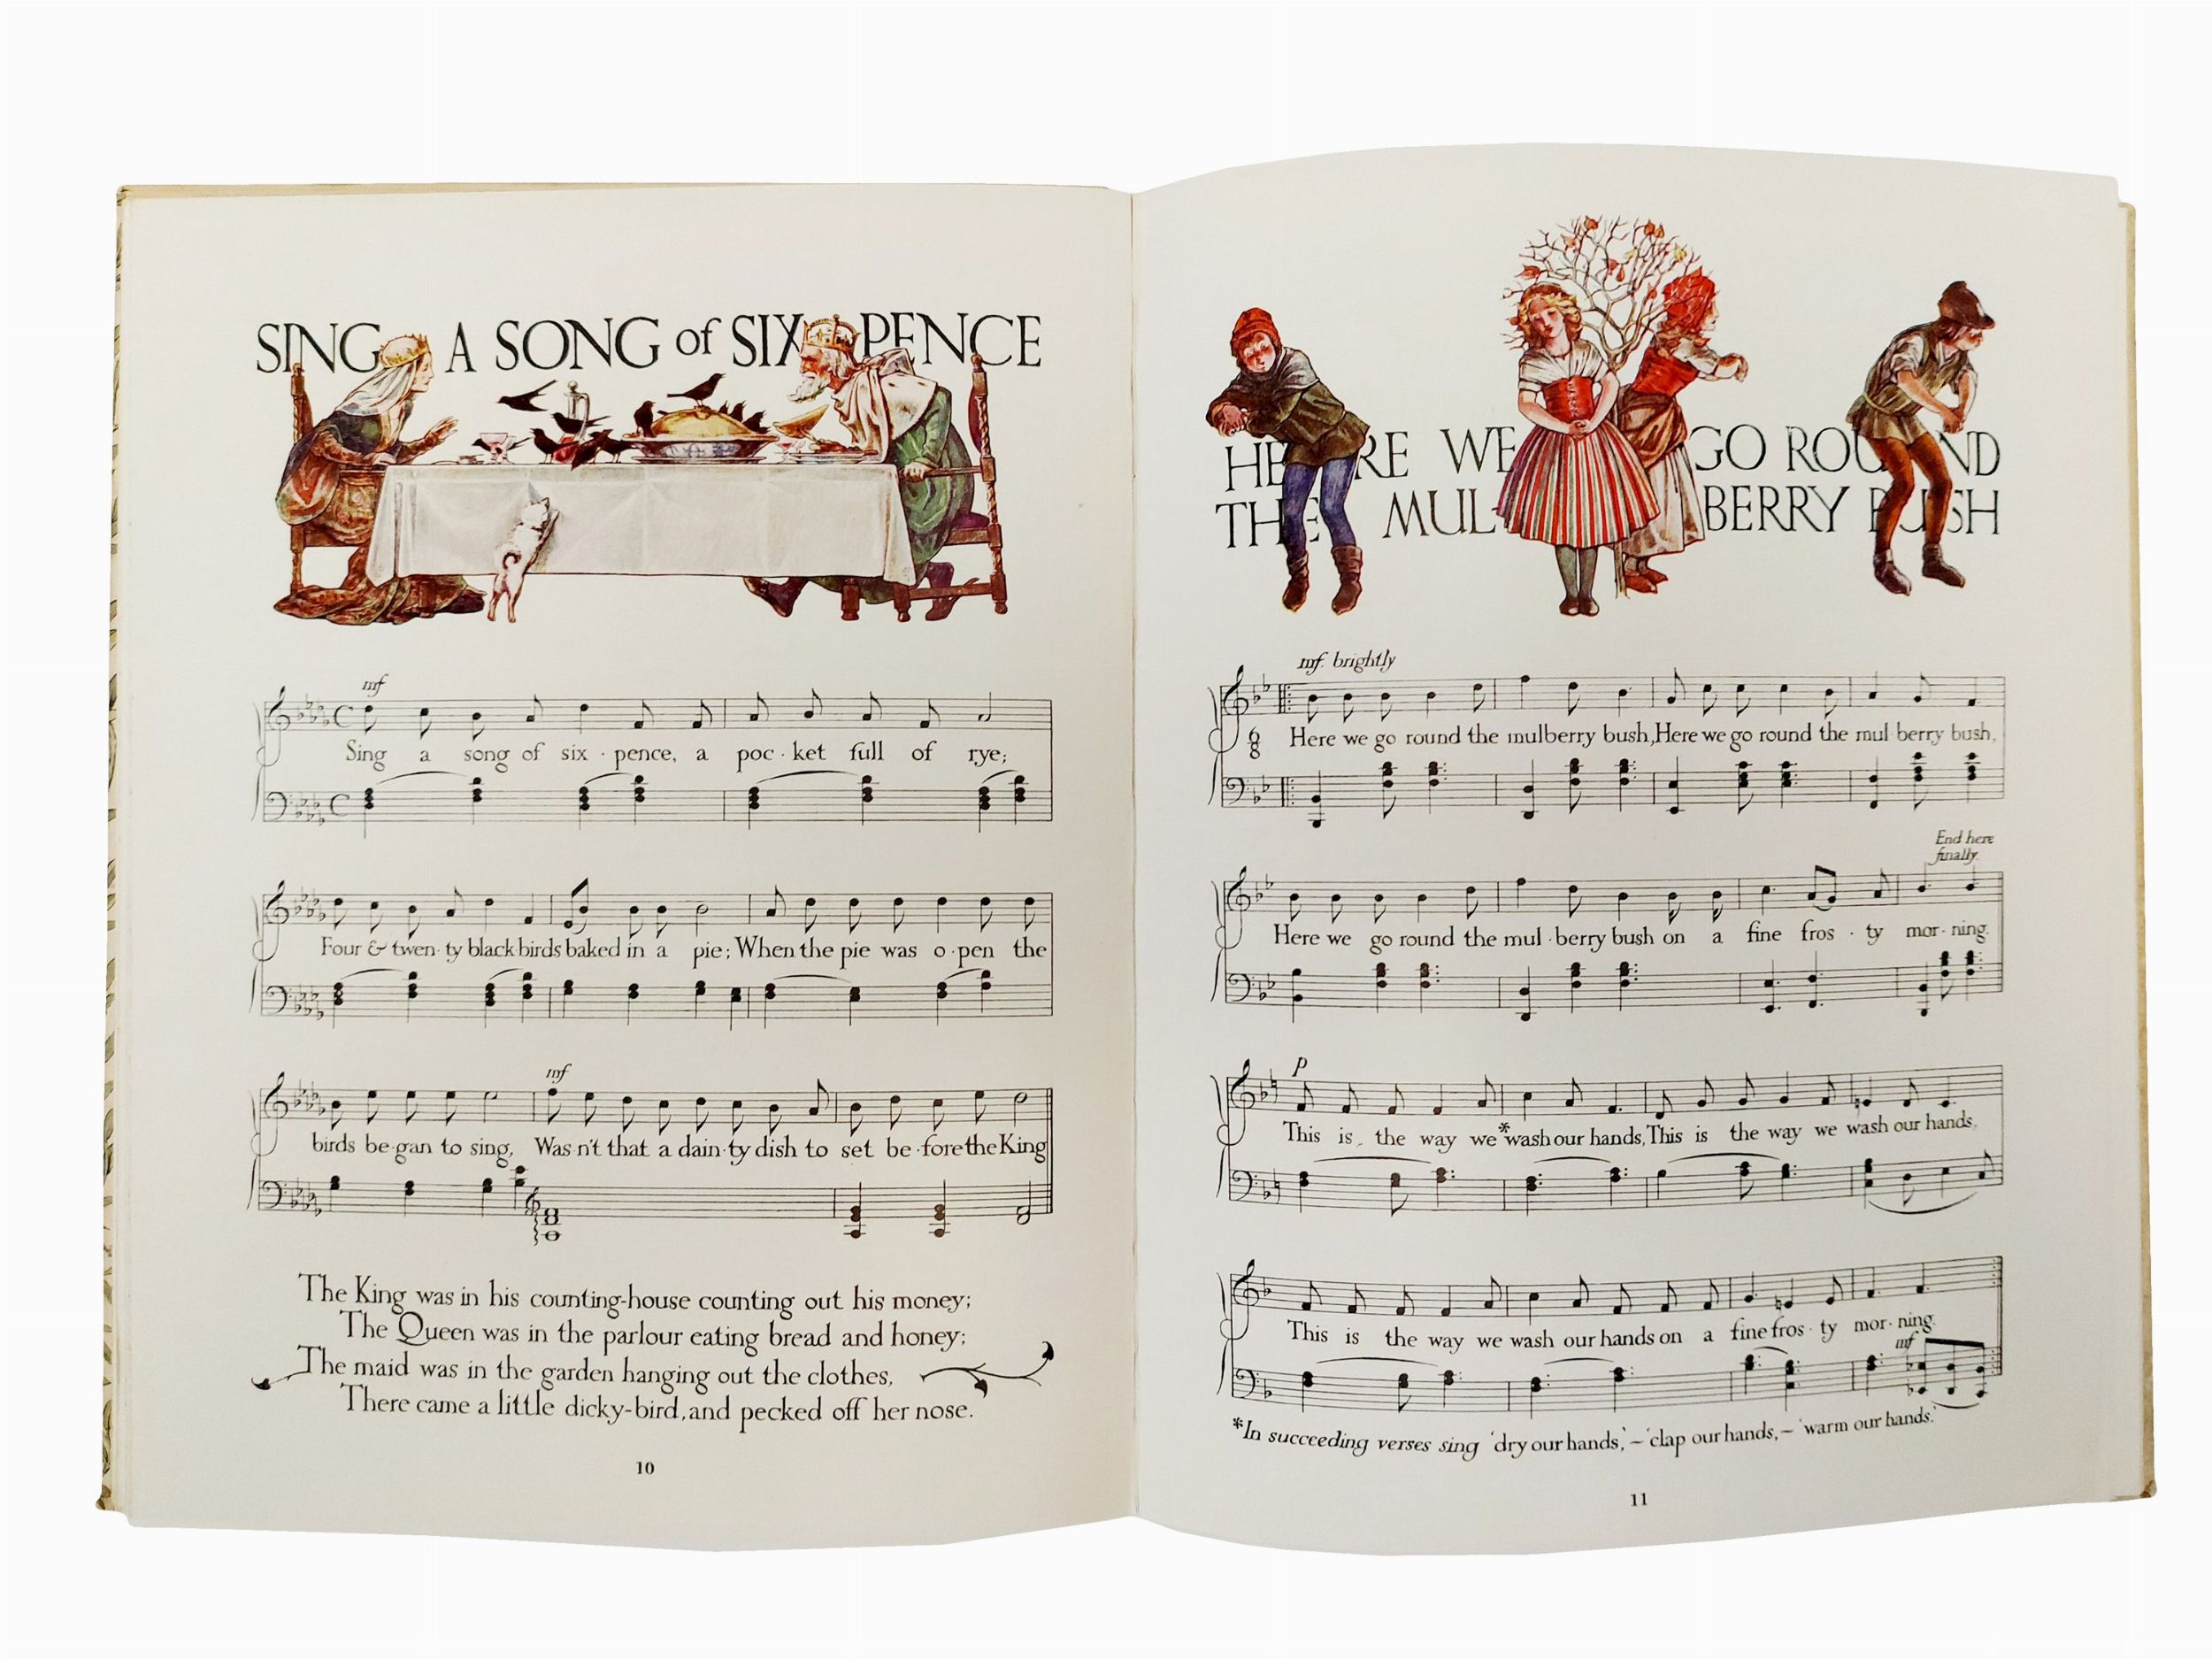 SING A SONG of SIXPENCE
mf
Sing a song of six · pence, a poc · ket full of rye;
Four & twen · ty black · birds baked in a pie; When the pie was o · pen the
mf
birds be · gan to sing, Was · n't that a dain · ty dish to set be · fore the King
The King was in his counting-house counting out his money;
The Queen was in the parlour eating bread and honey;
The maid was in the garden hanging out the clothes,
There came a little dicky-bird, and pecked off her nose.
10
HERE WE GO ROUND
THE MULBERRY BUSH
mf. brightly
6
8
Here we go round the mulberry bush, Here we go round the mul · berry bush,
End here
finally.
Here we go round the mul · berry bush on a fine fros · ty mor · ning.
p
This is the way we *wash our hands, This is the way we wash our hands,
This is the way we wash our hands on a fine fros · ty mor · ning.
mf
*In succeeding verses sing 'dry our hands,' – 'clap our hands, – 'warm our hands.'
11